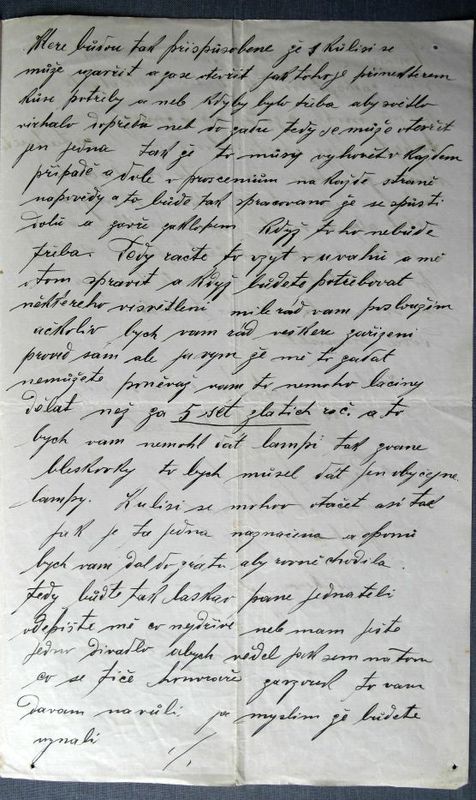 ktere bůdou tak přispůsobene že s kúlisi se
může uzavřit a zase otevřit jak toho je při nekterem
kuse potřeby a neb kdyby bylo třeba aby světlo
vichalo dopředu neb do zadu tedy je může otevřit
jen jedna tak že to můsy vyhovět v každem
připadě a dole v prosceniům na kajdé straně
napovědy a to bůde tak spracovano že se spůsti
dolů a zavře zaklopem když to ho nebůde
třeba. Tedy račte to vzyt v uvahu a mě
o tom spravit a když bůdete potřebovat
některeho visvětleni mile rad vam posloužim
ačkoliv bych vam rad veškere zařizeni
provid sám ale ja vym že mě to zadat
nemůžete poněvaj vam to nemoho laciny
dělat než za 5 set zlatich roč. a to
bych vam nemohl dat lampi tak zvane
bleskovky to bych můsel dat jen obyčejne
lampy. Kulisi se mohou otačet asi tak
jak je ta jedna naznačena a oponu
bych vam dal do pratu aby rovně chodila.
Tedy bůdte tak laskav pane jednateli
odepište mě co nejdřive neb mam ješte
jedno divadlo abych věděl jak sem na tom
co se tiče honorare garzouch to vam
davam na vůli ja myslim že bůdete
uznali ./.